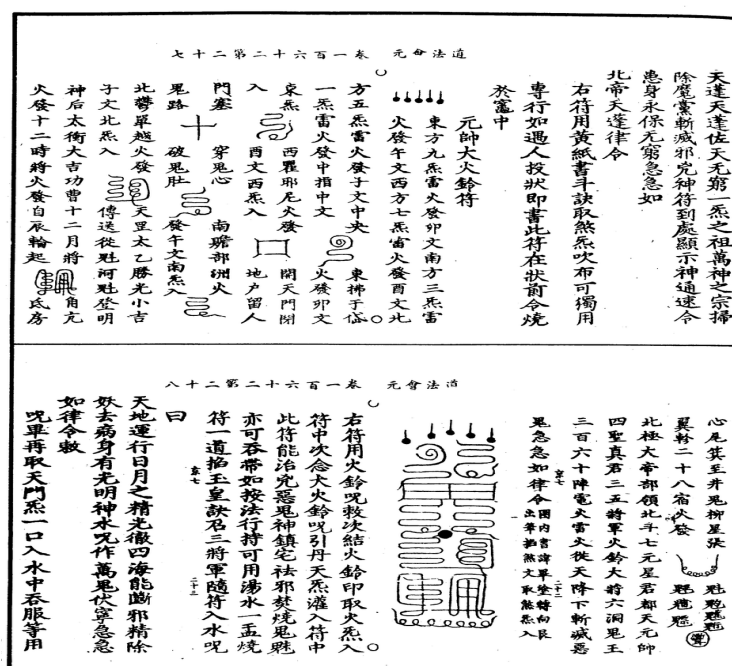 天蓬天蓬佐天无窮一炁之祖萬神之宗掃
除魔黨斬滅邪兇神符到處顯示神通速令
患身永保无窮急急如
北帝天蓬律令
右符用黃紙書斗訣取煞炁吹布可獨用
專行如遇人投狀即書此符在狀前令燒
於竈中
元帥大火鈴符
東方九炁雷火發卯文南方三炁雷
火發午文西方七炁雷火發酉文北
方五炁雷火發子文中央
一炁雷火發中指中文
火發卯文
東炁入
西瞿耶尼火發
開天門閉
入
酉文西炁入
地户留人
門塞
穿鬼心
南瞻部洲火
鬼路
破鬼肚
發午文南炁入
北鬱單越火發
天罡太乙勝光小吉
子文北炁入
傳送從魁河魁登明
神后太衝大吉功曹十二月將
角亢
火發十二時將火發自辰輪起
氐房
道法會元 卷一百六十二第二十七
心尾箕至井鬼柳星張
翼軫二十八宿火發
北極大帝部領北斗七元星君都天元帥
四聖真君三五將軍火鈴大將六洞鬼王
三百六十陣電火雷火從天降下斬滅惡
鬼急急如律令
右符用火鈴呪敕次結火鈴印取火炁入
符中次念大火鈴呪引丹天炁灌入符中
此符能治兇惡鬼神鎮宅祛邪焚燒鬼魅
亦可吞帶如按法行持可用湯水一盂燒
符一道掐玉皇訣召三將軍隨符入水呪
曰
天地運行日月之精光徹四海能斷邪精除
妖去病身有光明神水呪作萬鬼伏寧急急
如律令敕
呪畢再取天門炁一口入水中吞服等用
道法會元 卷一百六十二第二十八